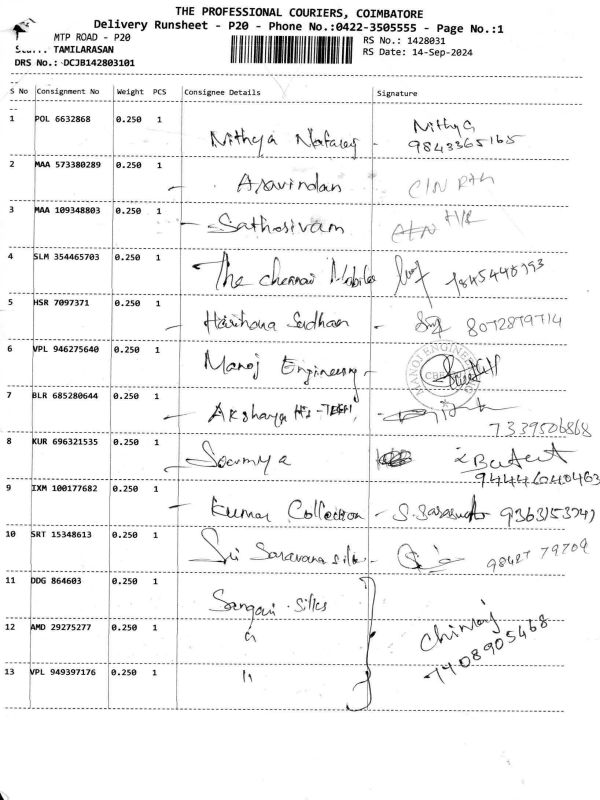 THE PROFESSIONAL COURIERS, COIMBATORE
Delivery Runsheet - P20 - Phone No.:0422-3505555 - Page No.:1
MTP ROAD - P20
RS No.: 1428031
TAMILARASAN
RS Date: 14-Sep-2024
DRS No.: DCJB142803101
S No Consignment No Weight PCS Consignee Details Signature
1 POL 6632868 0.250 1 Nithya Nithya
9843365165
2 MAA 573380289 0.250 1 - Aravindan
3 MAA 109348803 0.250 1 - Sathasivam
4 SLM 354465703 0.250 1 The chennai Mobiles
5 HSR 7097371 0.250 1 - Harihara Sudhan - 8072879714
6 VPL 946275640 0.250 1 Manoj Engineering -
7 BLR 685280644 0.250 1 - Akshaya
7339506868
8 KUR 696321535 0.250 1 - Sowmya
9 IXM 100177682 0.250 1 - Kumar Collection -
10 SRT 15348613 0.250 1 - Sri Saravana silk -
11 DDG 864603 0.250 1 Sangari silks
12 AMD 29275277 0.250 1 "
7408905468
13 VPL 949397176 0.250 1 "